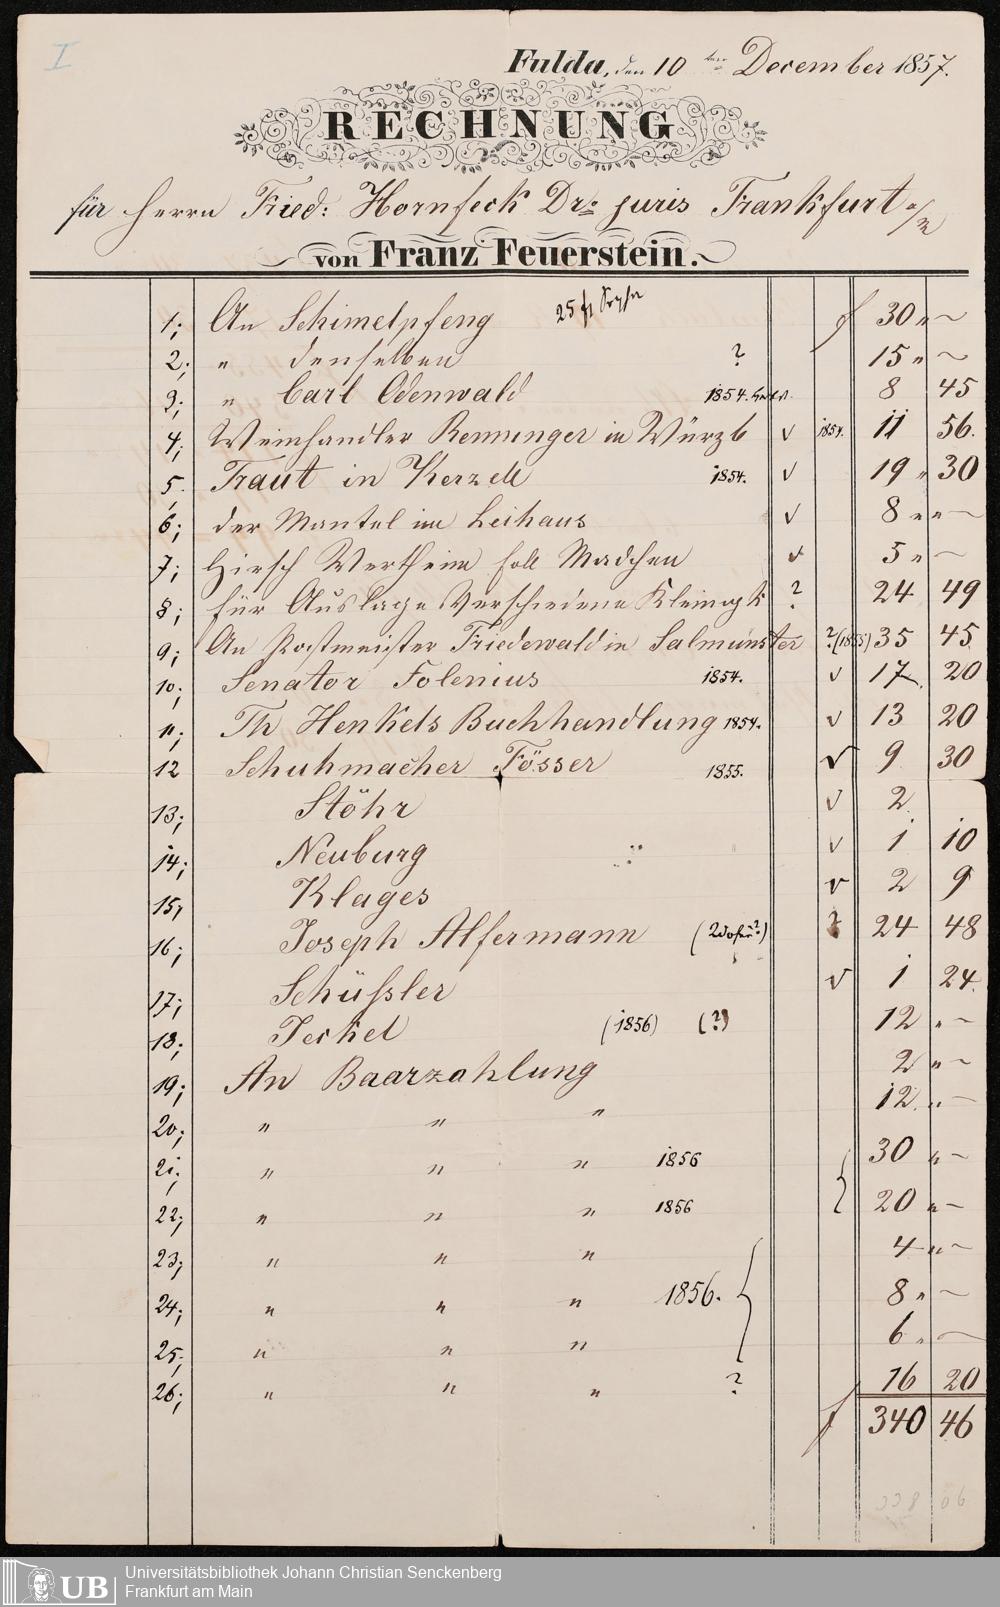 I
Fulda, den 10 ten December 1857.
RECHNUNG
für Herrn Fried: Hornfeck Dr: juris Frankfurt a/m
von Franz Feuerstein.
1; An Schimelpfeng 25 fl f 30 " —
2; " denselben ? 15 " —
3; " Carl Odenwald 1854. 8 45
4; Weinhandler Renninger in Würzb v 1854. 11 56.
5. Traut in Kerzell 1854. v 19 " 30
6; der Mantel im Leihaus v 8 " " —
7; Hirsch Wertheim foll Madchen v 5 " —
8; für Auslage Verschiedene ? 24 49
9; An Postmeister Friedewald in Salmünster ? (1855) 35 45
10; Senator Folenius 1854. v 17 20
11; Th Henkels Buchhandlung 1854. v 13 20
12 Schuhmacher Fösser 1855. v 9 30
13; Stöhr v 2
14; Neuburg v 1 10
15, Klages v 2 9
16; Joseph Alfermann (Wofür?) ? 24 48
17; Schüssler v 1 24.
18; Jeckel (1856) (?) 12 " —
19; An Baarzahlung 2 " —
20; " " " 12 " —
21; " " " 1856 30 " —
22; " " " 1856 20 " —
23; " " " 4 " —
24; " " " 1856. 8 " —
25; " " " 6 " —
26; " " " ? 16 20
f 340 46
UB Universitätsbibliothek Johann Christian Senckenberg
Frankfurt am Main